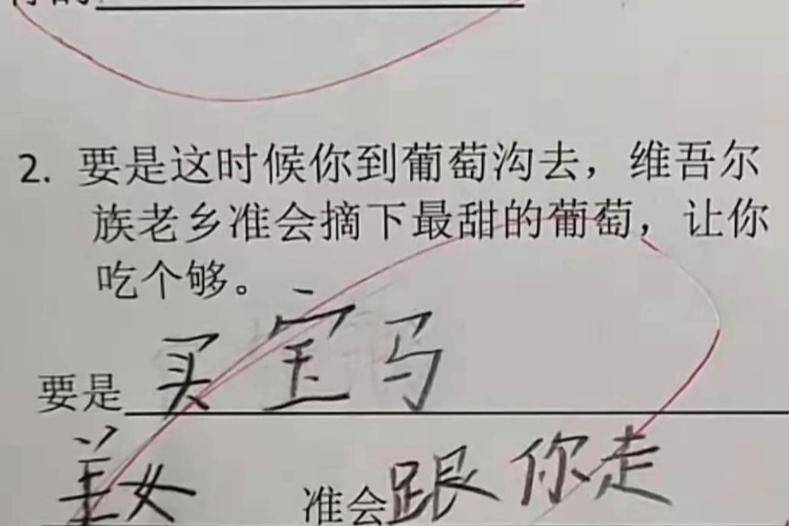 2. 要是这时候你到葡萄沟去，维吾尔
族老乡准会摘下最甜的葡萄，让你
吃个够。
要是买宝马
美女 准会跟你走